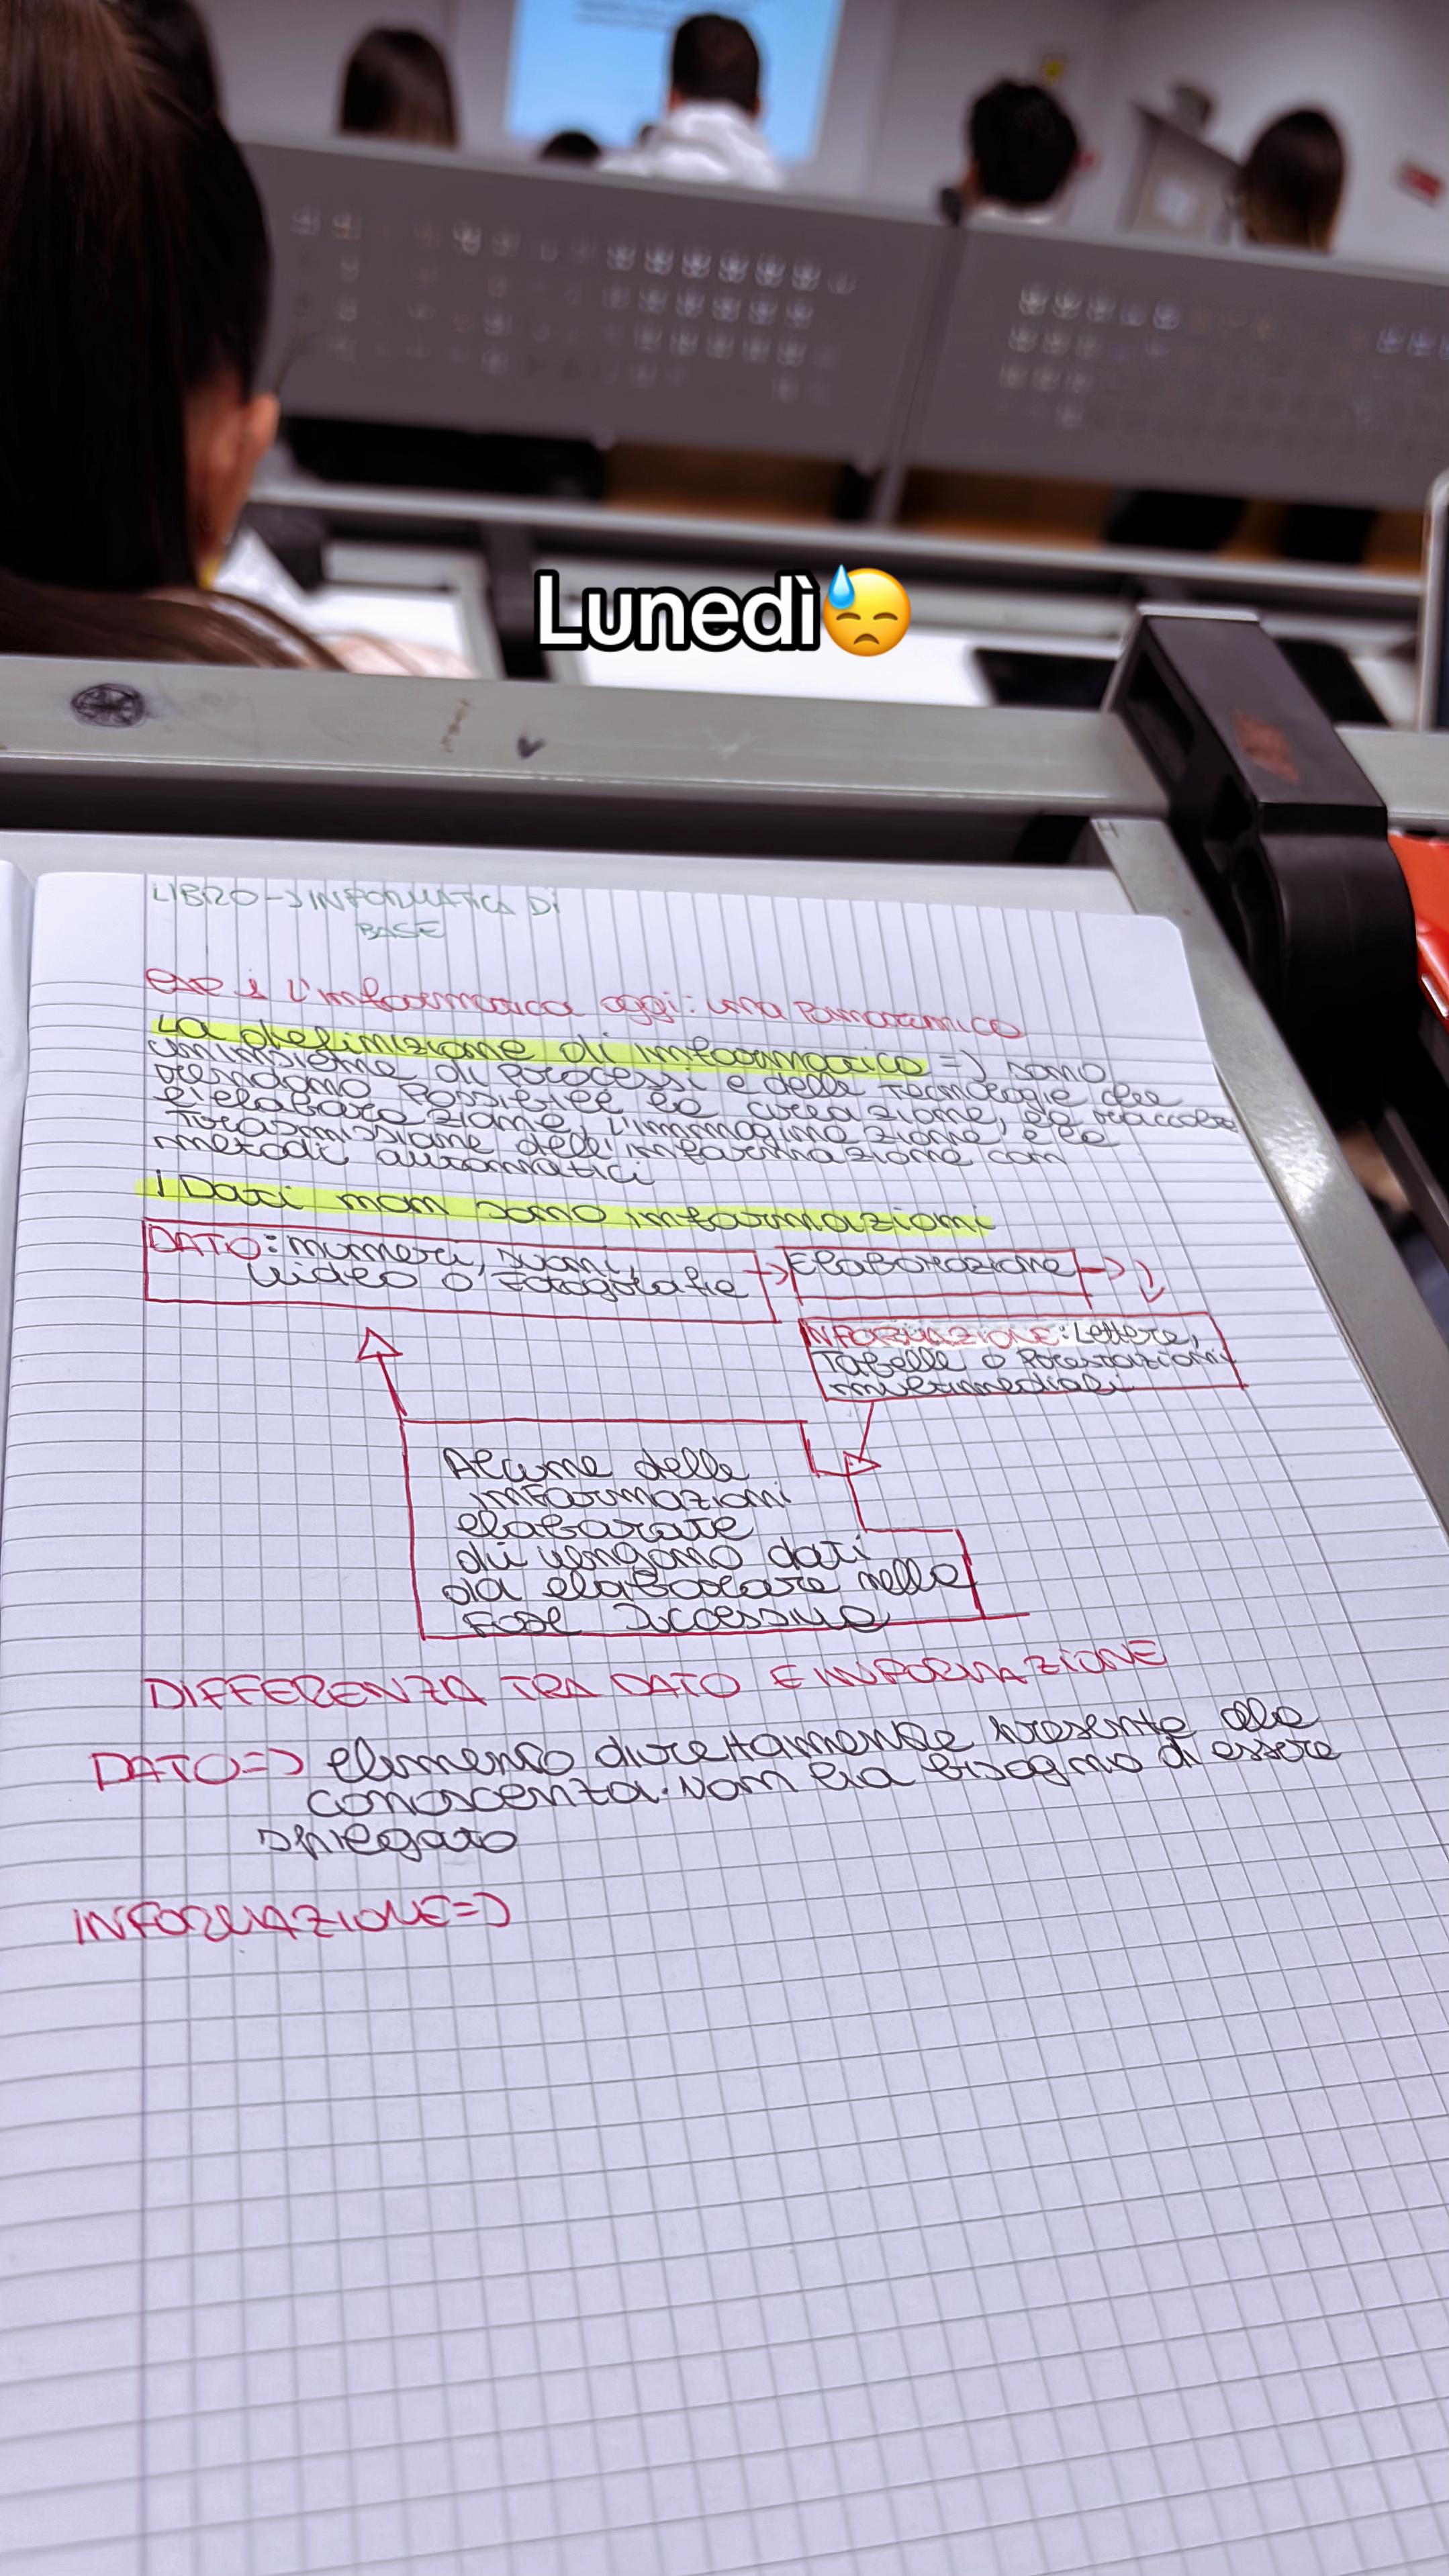 Lunedì😓
LIBRO → INFORMATICA DI
BASE
l'informatica oggi: una Panoramica
La definizione di informatica => sono
un insieme di processi e delle tecnologie che
rendono possibile la creazione, la raccolta
l'elaborazione, l'immaginazione e la
trasmissione dell'informazione con
metodi automatici
I Dati non sono informazioni
DATO: numeri, suoni,
video o fotografie
Elaborazione
INFORMAZIONE: Lettere,
Tabelle o Presentazioni
multimediali
Alcune delle
informazioni
elaborate
vengono dati
da elaborare nella
fase successiva
DIFFERENZA TRA DATO E INFORMAZIONE
DATO => elemento direttamente presente alla
conoscenza. Non ha bisogno di essere
spiegato
INFORMAZIONE =>